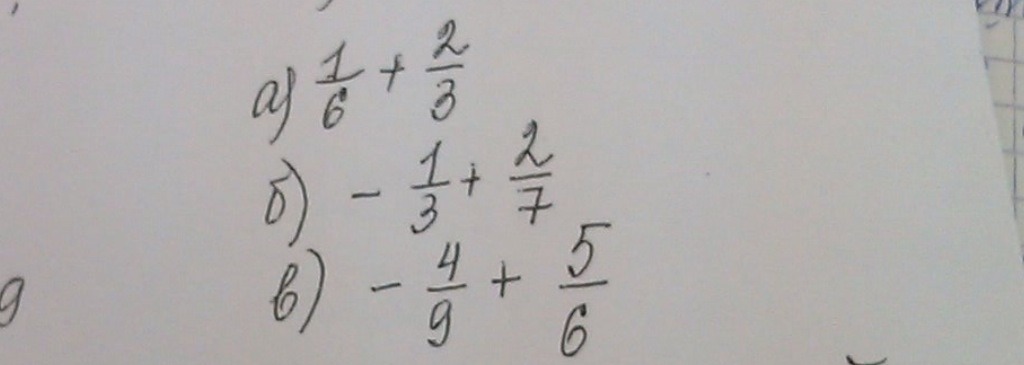 а) 1/6 + 2/3
б) - 1/3 + 2/7
9 в) - 4/9 + 5/6